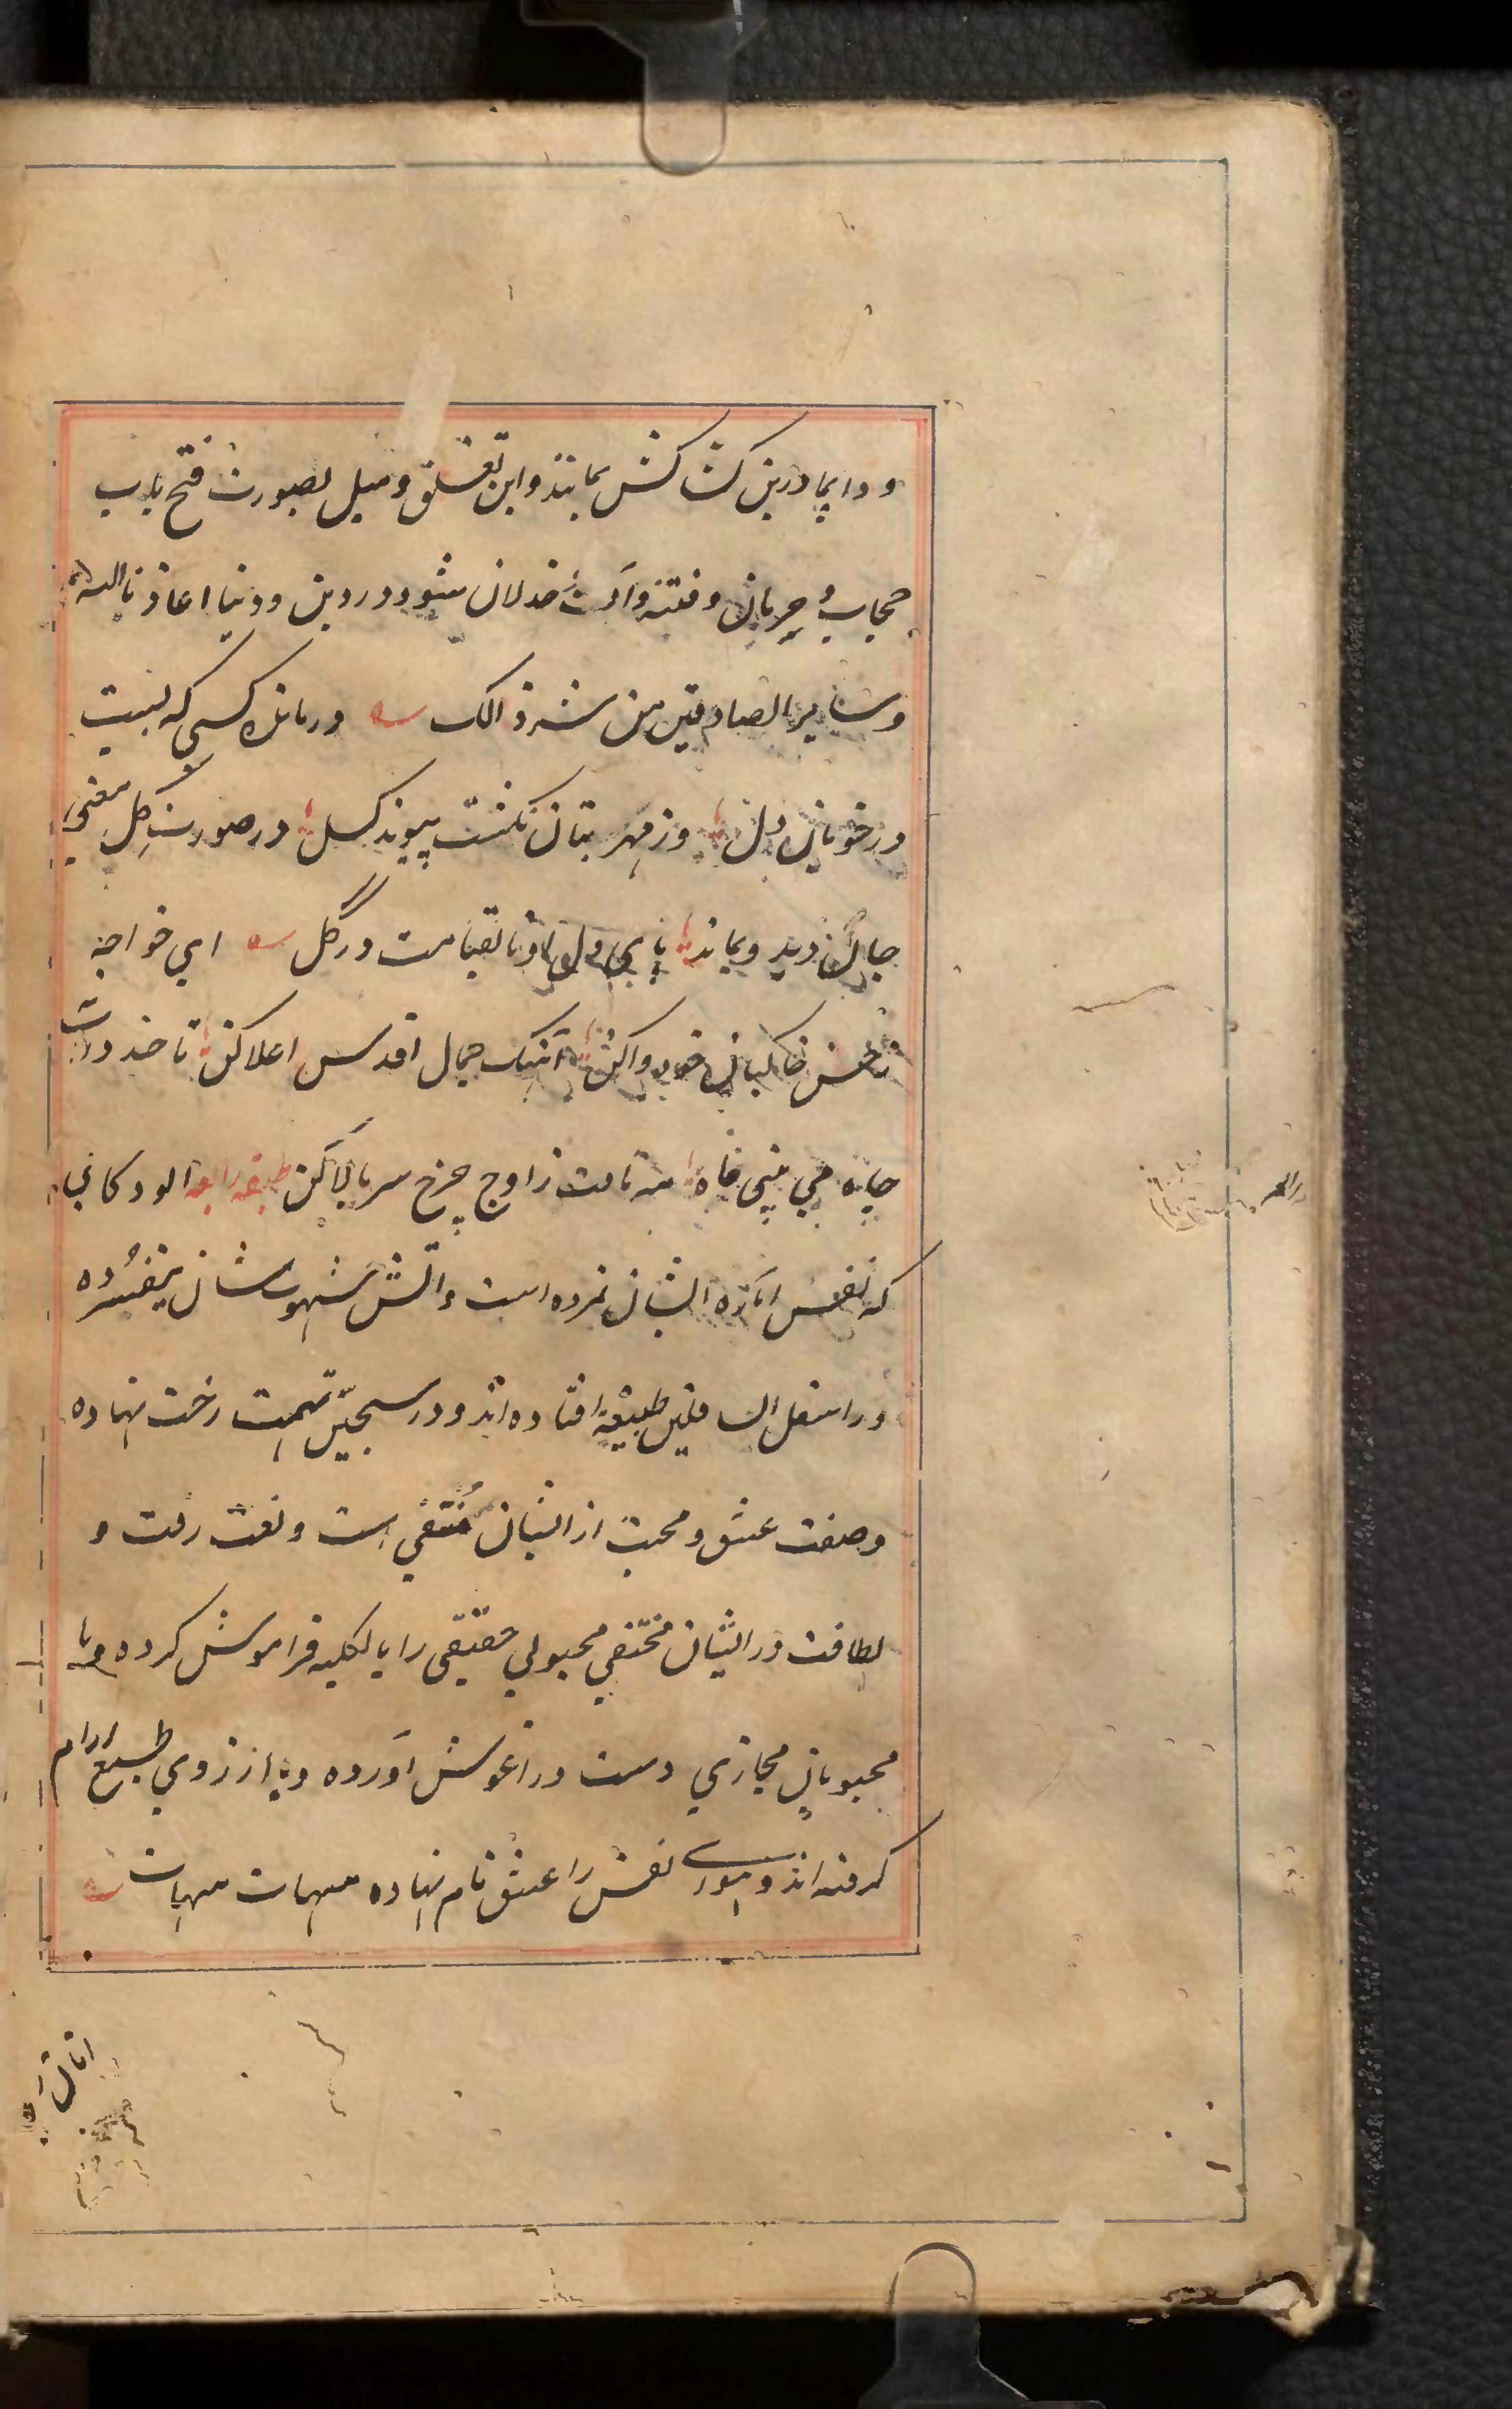 و دایما درین کشاکش بمانند و این تعشق و میل بصورت فتح باب
حجاب و حرمان و فتنه و آفت خذلان شود در دین و دنیا اعاذنا الله
و سایر الصادقین من شر ذالک درمانده کسی که بست
در خوبان دل وز مهر بتان نکشت پیوند کسل در صورت کل معنی
جان دید و بماند پای دل او تا بقیامت در گل ای خواجه
ز حسن خاکیان خود واکن آهنک جمال اقدس اعلا کن تا چند درآب
چاه می بینی ماه مه تافت ز اوج چرخ سر بالا کن طبقه رابعه آلودکانی
که نفس اماره ایشان نمرده است و آتش شهوت شان نیفسرده
در اسفل السافلین طبیعة افتاده اند و در سجین بهیمت رخت نهاده
وصفت عشق و محبت از ایشان منتفی است و نعت رقت و
لطافت در ایشان مختفی محبوبی حقیقی را بالکلیه فراموش کرده و با
محبوبان مجازی دست در اغوش آورده و با ارزوی طبیع ارام
کرفته اند و هوای نفس را عشق نام نهاده هیهات هیهات